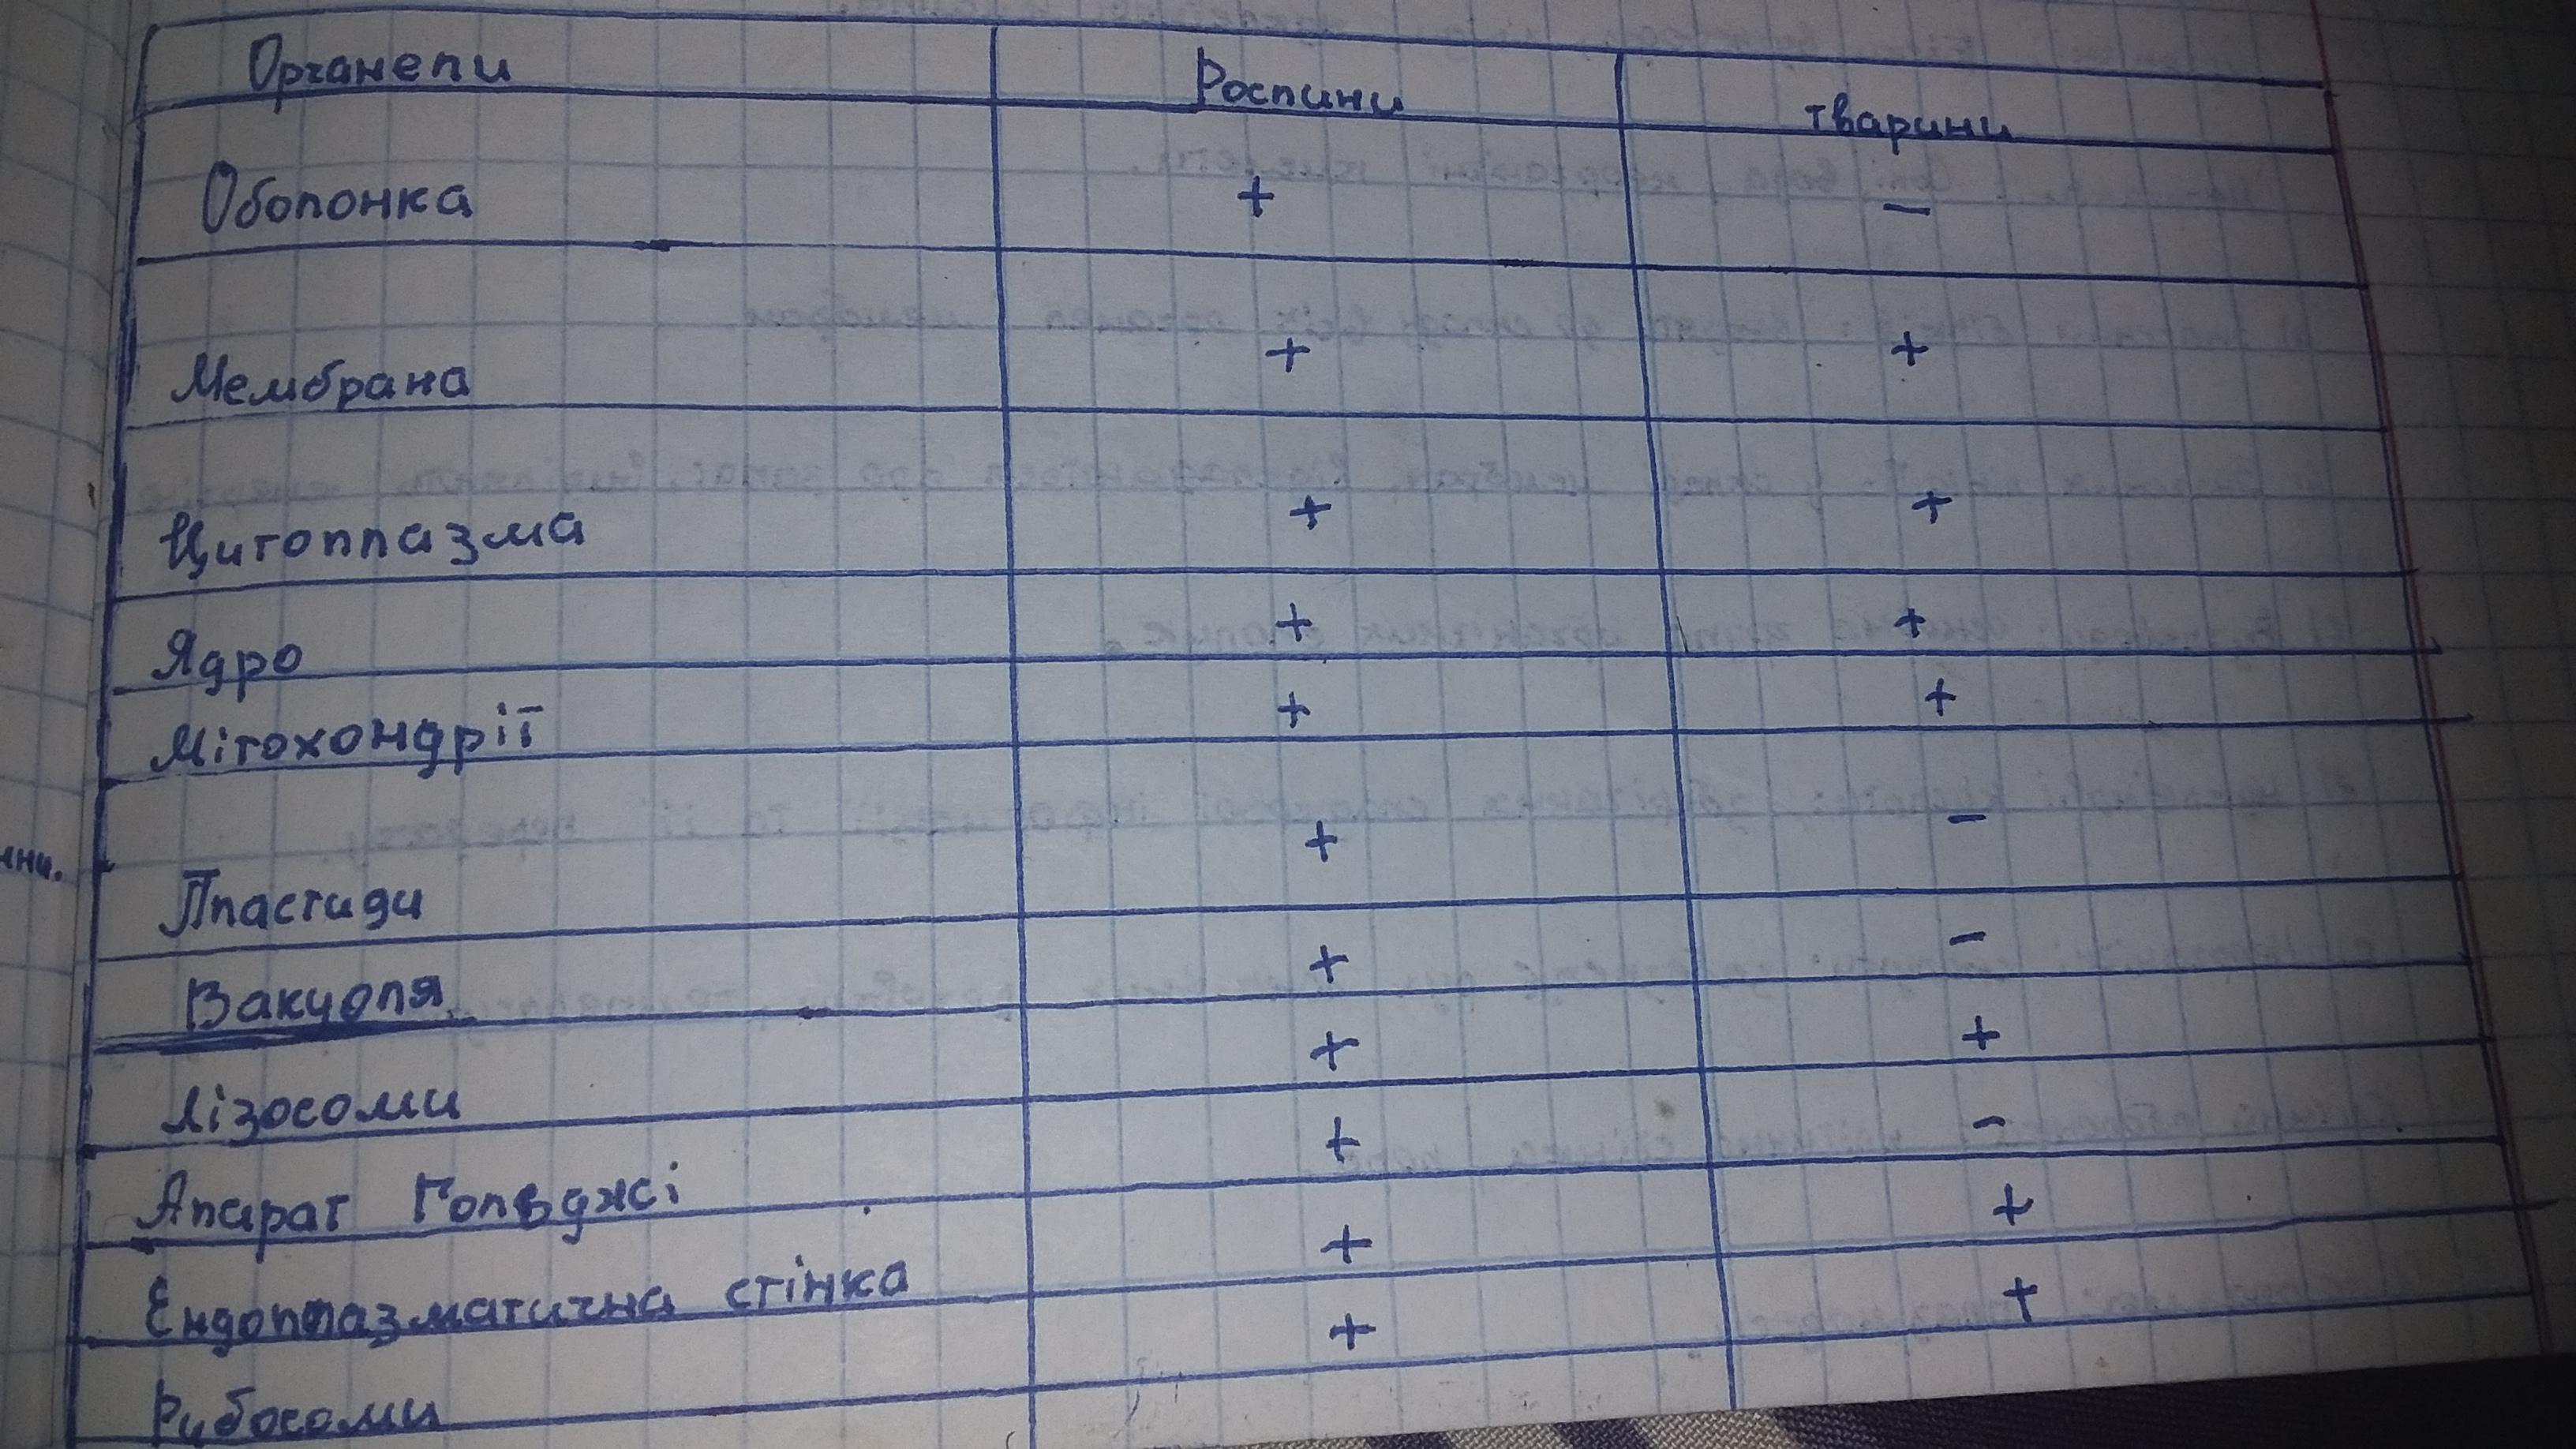 Органели Рослини тварини
Оболонка + −
Мембрана + +
Цитоплазма + +
Ядро + +
Мітохондрії + +
Пластиди + −
Вакуоля + −
Лізосоми + +
Апарат Гольджі + −
Ендоплазматична стінка + +
Рибосоми + +
нни.